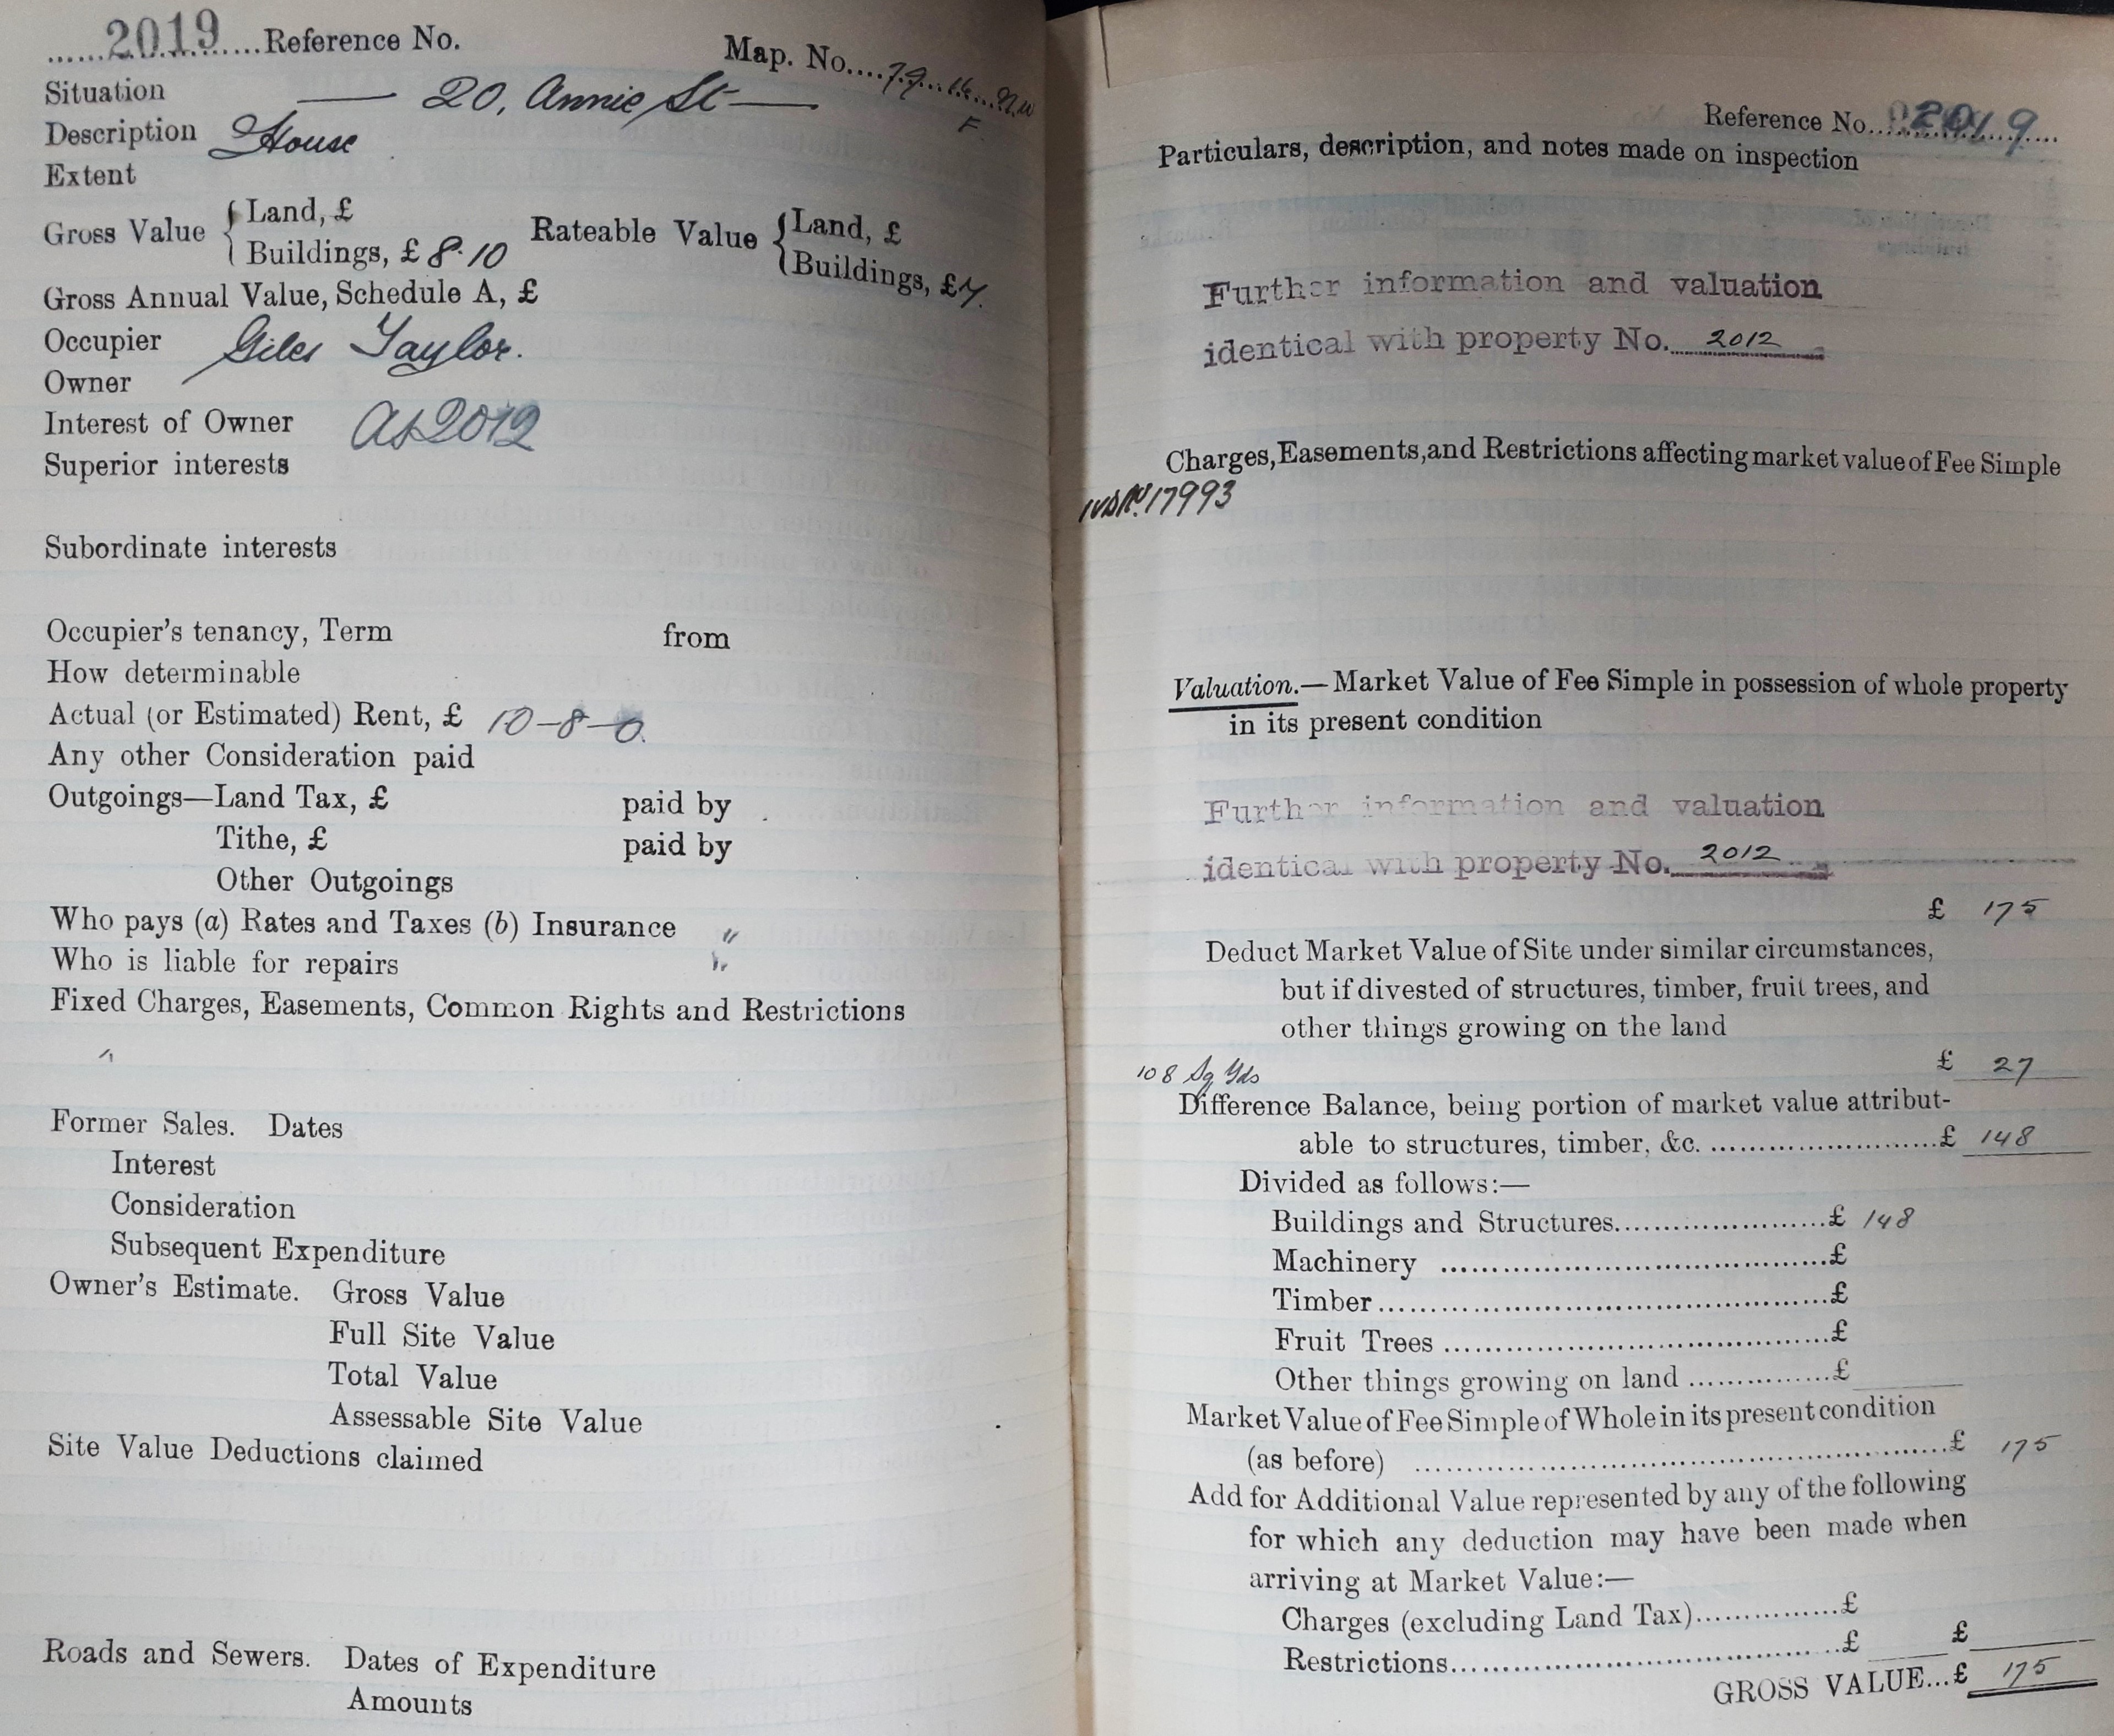 ......2019......Reference No.
Map. No....79...16...N.W
F.
Situation — 20, Annie St —
Description House
Extent
Gross Value { Land, £
Buildings, £ 8.10
Rateable Value { Land, £
Buildings, £7.
Gross Annual Value, Schedule A, £
Occupier Giles Taylor.
Owner
Interest of Owner As 2012
Superior interests
Subordinate interests
Occupier's tenancy, Term from
How determinable
Actual (or Estimated) Rent, £ 10-8-0.
Any other Consideration paid
Outgoings—Land Tax, £ paid by
Tithe, £ paid by
Other Outgoings
Who pays (a) Rates and Taxes (b) Insurance "
Who is liable for repairs "
Fixed Charges, Easements, Common Rights and Restrictions
Former Sales. Dates
Interest
Consideration
Subsequent Expenditure
Owner's Estimate. Gross Value
Full Site Value
Total Value
Assessable Site Value
Site Value Deductions claimed
Roads and Sewers. Dates of Expenditure
Amounts
Reference No....2019....
Particulars, description, and notes made on inspection
Further information and valuation
identical with property No. 2012
Charges, Easements, and Restrictions affecting market value of Fee Simple
No. 17993
Valuation.—Market Value of Fee Simple in possession of whole property
in its present condition
Further information and valuation
identical with property No. 2012
£ 175
Deduct Market Value of Site under similar circumstances,
but if divested of structures, timber, fruit trees, and
other things growing on the land
108 Sq Yds £ 27
Difference Balance, being portion of market value attribut-
able to structures, timber, &c. ........................£ 148
Divided as follows:—
Buildings and Structures......................£ 148
Machinery ......................................£
Timber............................................£
Fruit Trees ......................................£
Other things growing on land ...............£
Market Value of Fee Simple of Whole in its present condition
(as before) ......................................................£ 175
Add for Additional Value represented by any of the following
for which any deduction may have been made when
arriving at Market Value:—
Charges (excluding Land Tax)..............£
Restrictions......................................£ £
GROSS VALUE...£ 175